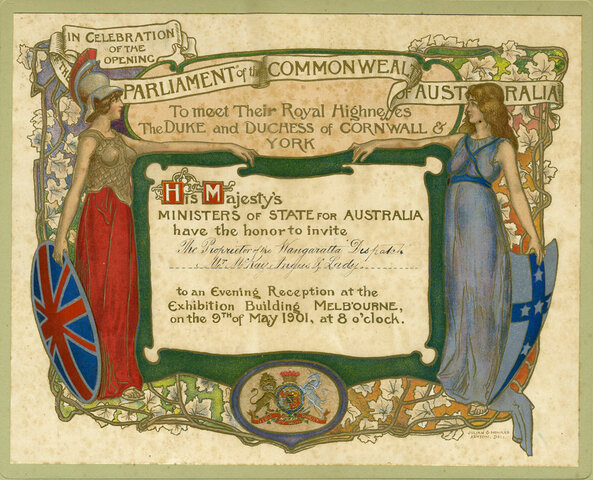 IN CELEBRATION
OF THE
OPENING
OF THE
PARLIAMENT of the COMMONWEAL
of AUSTRALIA
To meet Their Royal Highnesses
The DUKE and DUCHESS of CORNWALL &
YORK
His Majesty's
MINISTERS OF STATE FOR AUSTRALIA
have the honor to invite
The Proprietor of the Wangaratta Despatch
Mr McKay Angus & Lady
to an Evening Reception at the
Exhibition Building MELBOURNE,
on the 9TH of May 1901, at 8 o'clock.
ASHTON. DEL.